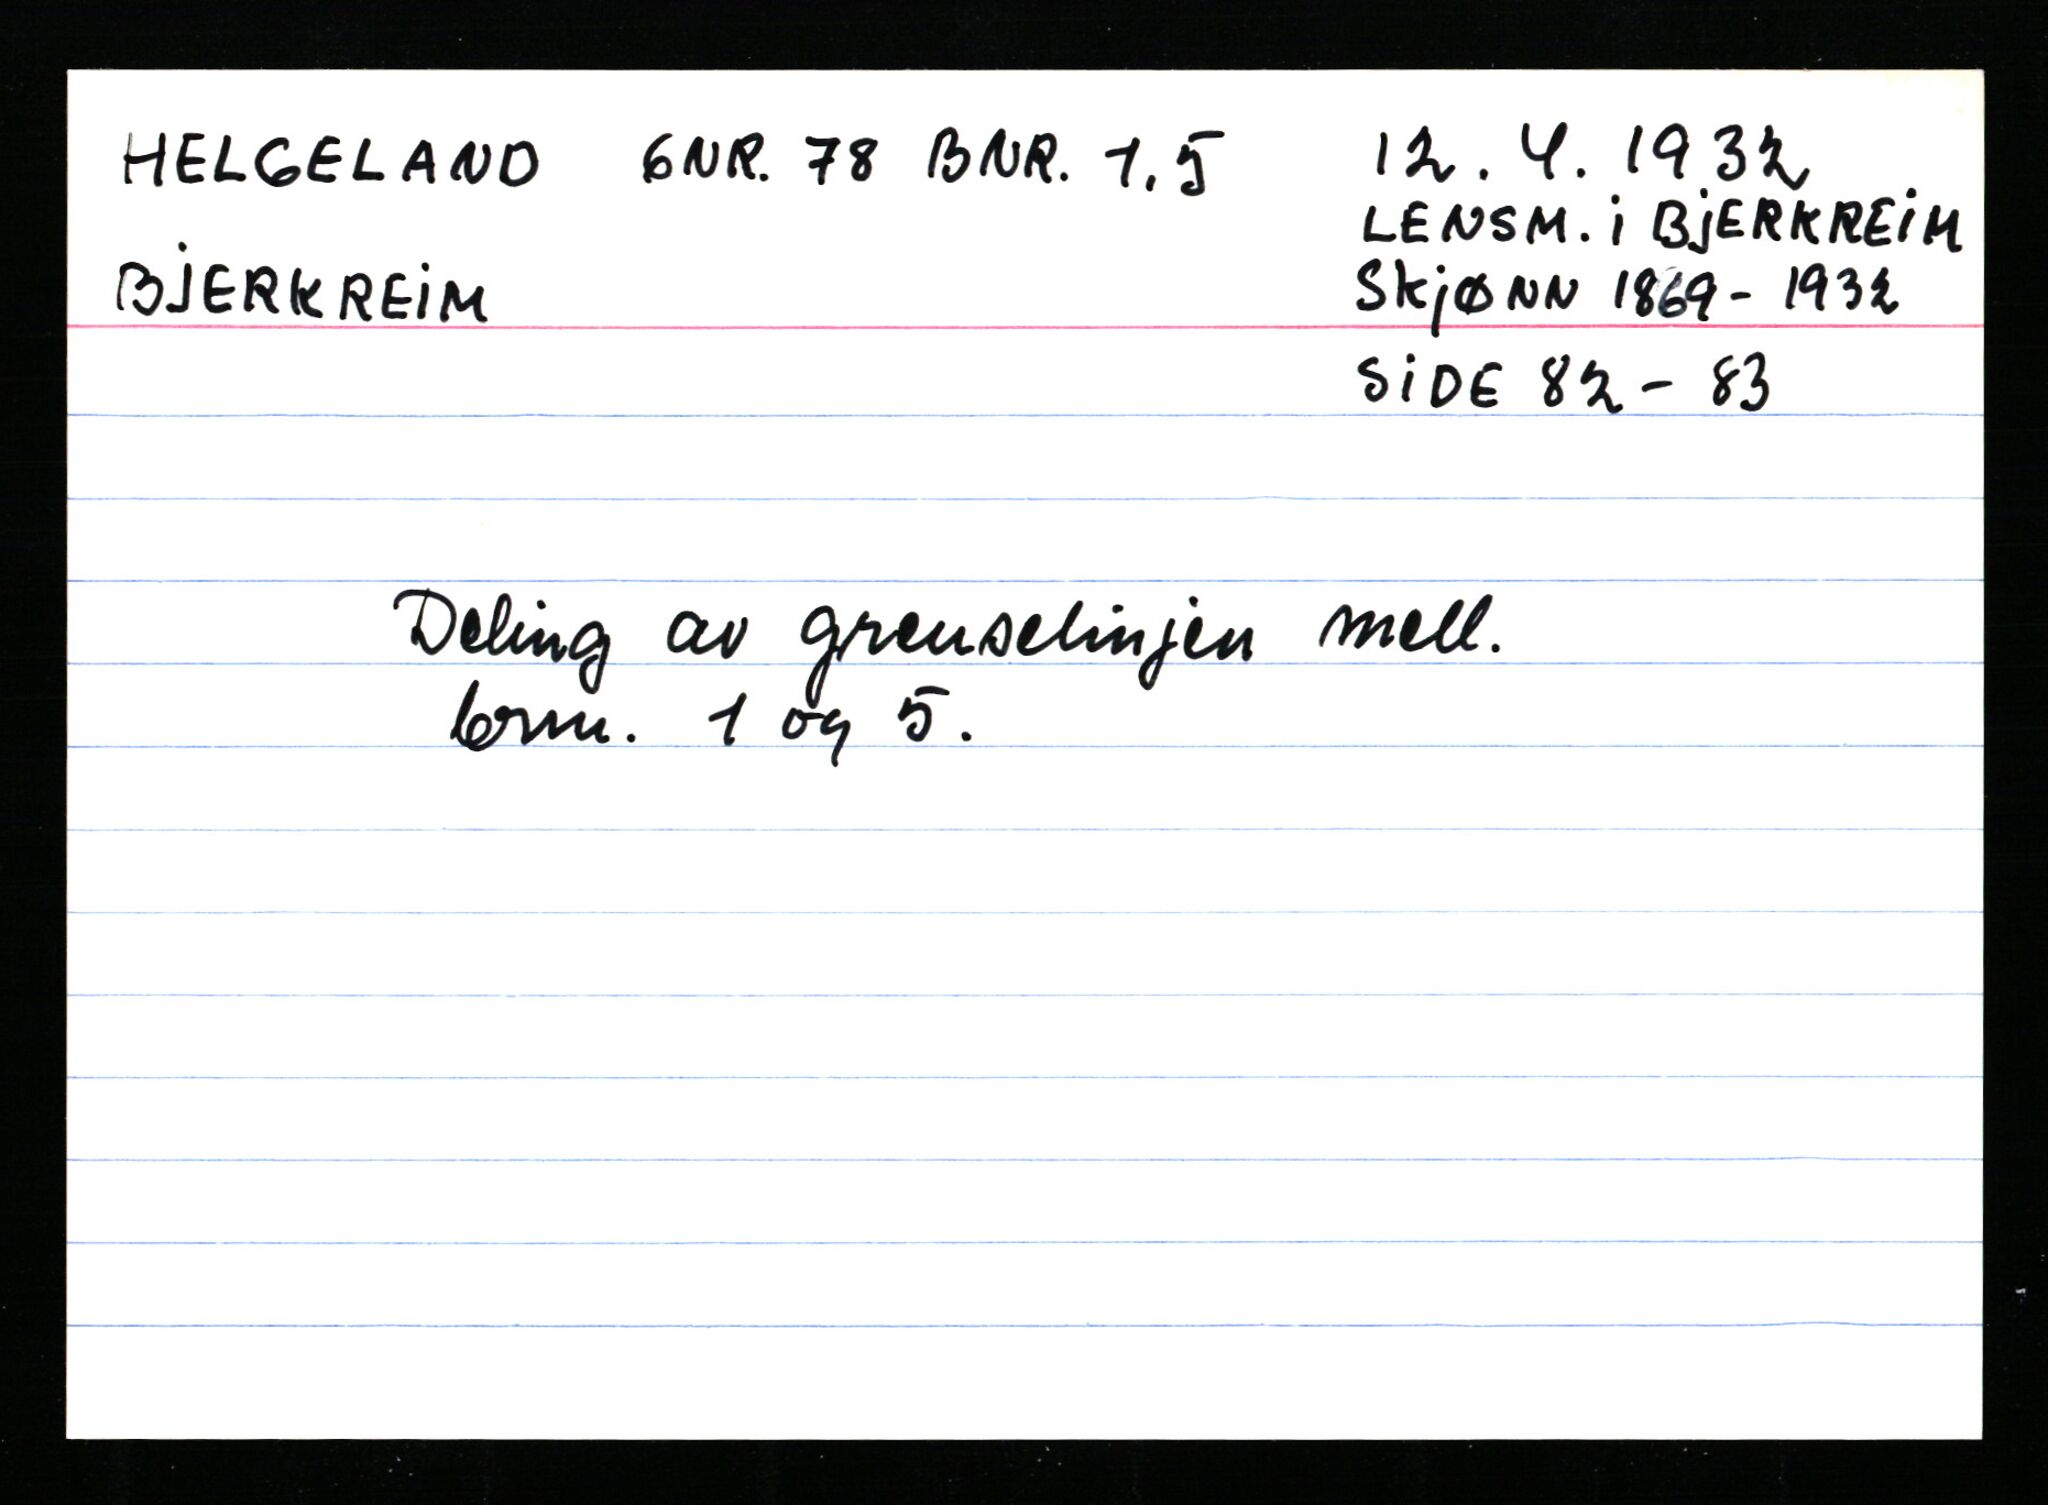 HELGELAND GNR. 78 BNR. 1,5
BJERKREIM
12. 4. 1932
LENSM. i BJERKREIM
SKJØNN 1869 - 1932
SIDE 82 - 83
Deling av grenselinjen mell.
brnr. 1 og 5.